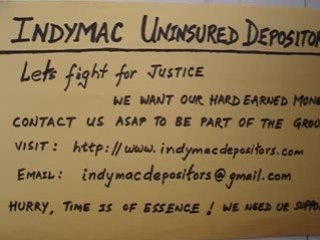 INDYMAC UNINSURED DEPOSITOR
Let's fight for JUSTICE
WE WANT OUR HARD EARNED MONE
CONTACT US ASAP TO BE PART OF THE GROU
VISIT: http://www.indymacdepositors.com
EMAIL: indymacdepositors@gmail.com
HURRY, TIME IS OF ESSENCE! WE NEED UR SUPPO